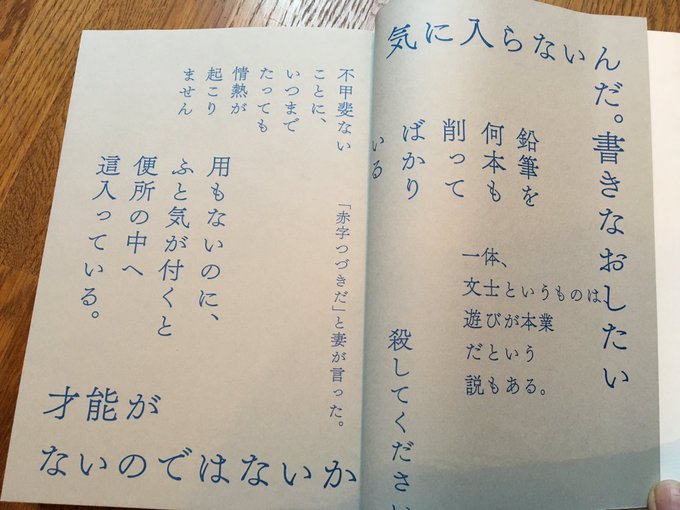 気に入らないんだ。書きなおしたい
鉛筆を
何本も
削って
ばかり
いる
一体、
文士というものは、
遊びが本業
だという
説もある。
殺してください
不甲斐ない
ことに、
いつまで
たっても
情熱が
起こり
ません
「赤字つづきだ」と妻が言った。
用もないのに、
ふと気が付くと
便所の中へ
這入っている。
才能が
ないのではないか